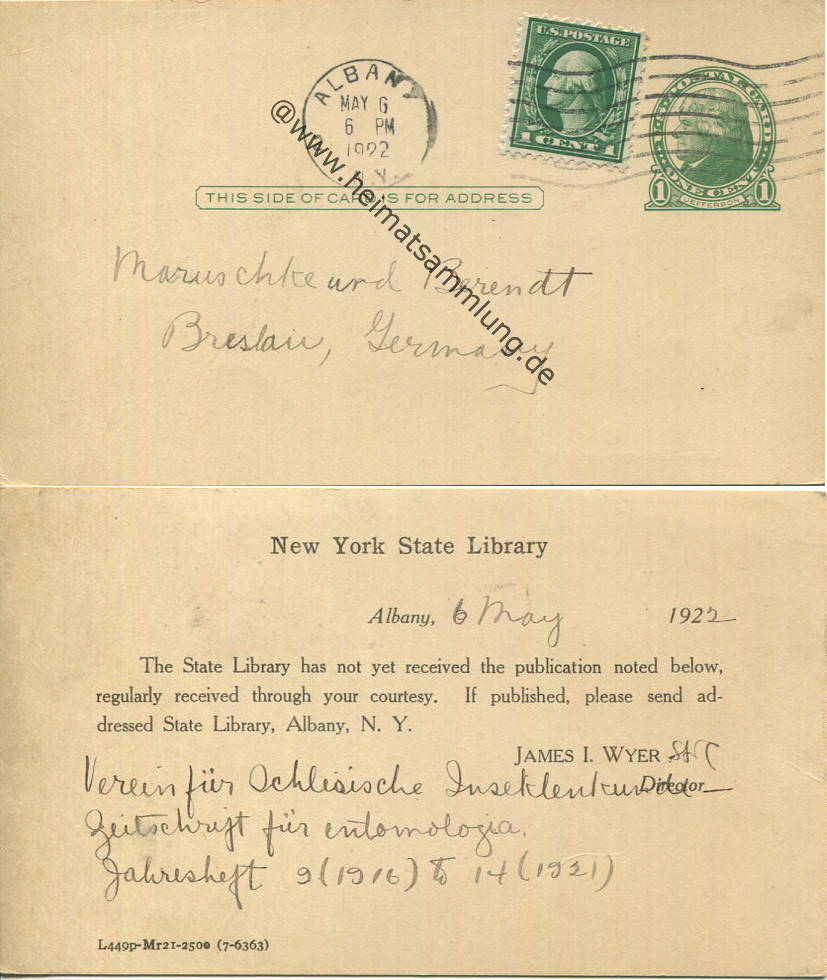 U.S. POSTAGE
1 CENT 1
ALBANY
MAY 6
6 PM
1922
N.Y.
POSTAL CARD
1 ONE CENT 1
JEFFERSON
THIS SIDE OF CARD IS FOR ADDRESS
@www.heimatsammlung.de
Maruschke und Berendt
Breslau, Germany
New York State Library
Albany, 6 May 1922
The State Library has not yet received the publication noted below,
regularly received through your courtesy. If published, please send ad-
dressed State Library, Albany, N. Y.
JAMES I. WYER
Director
Verein für Schlesische Insektenkunde
Zeitschrift für entomologia.
Jahresheft 9 (1916) to 14 (1921)
L449p-Mr21-2500 (7-6363)